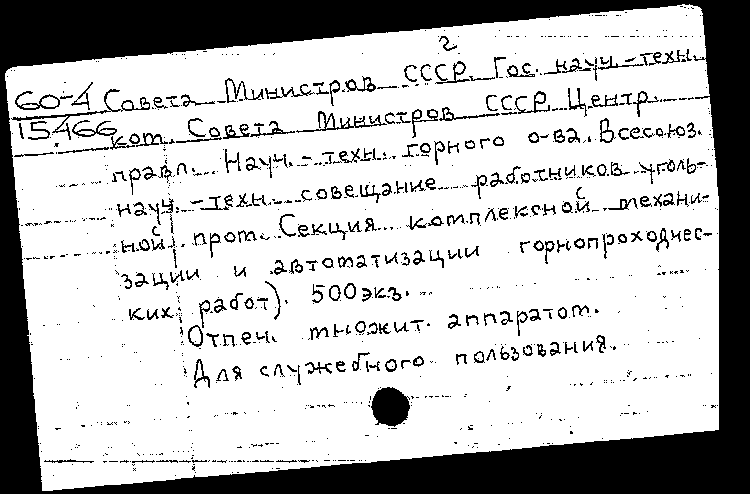 2
60-4 Совета Министров СССР. Гос. науч.-техн.
15466 ком. Совета Министров СССР. Центр.
правл. Науч.-техн. горного о-ва. Всесоюз.
науч.-техн. совещание работников уголь-
ной пром. Секция комплексной механи-
зации и автоматизации горнопроходчес-
ких работ). 500 экз.
Отпеч. множит. аппаратом.
Для служебного пользования.